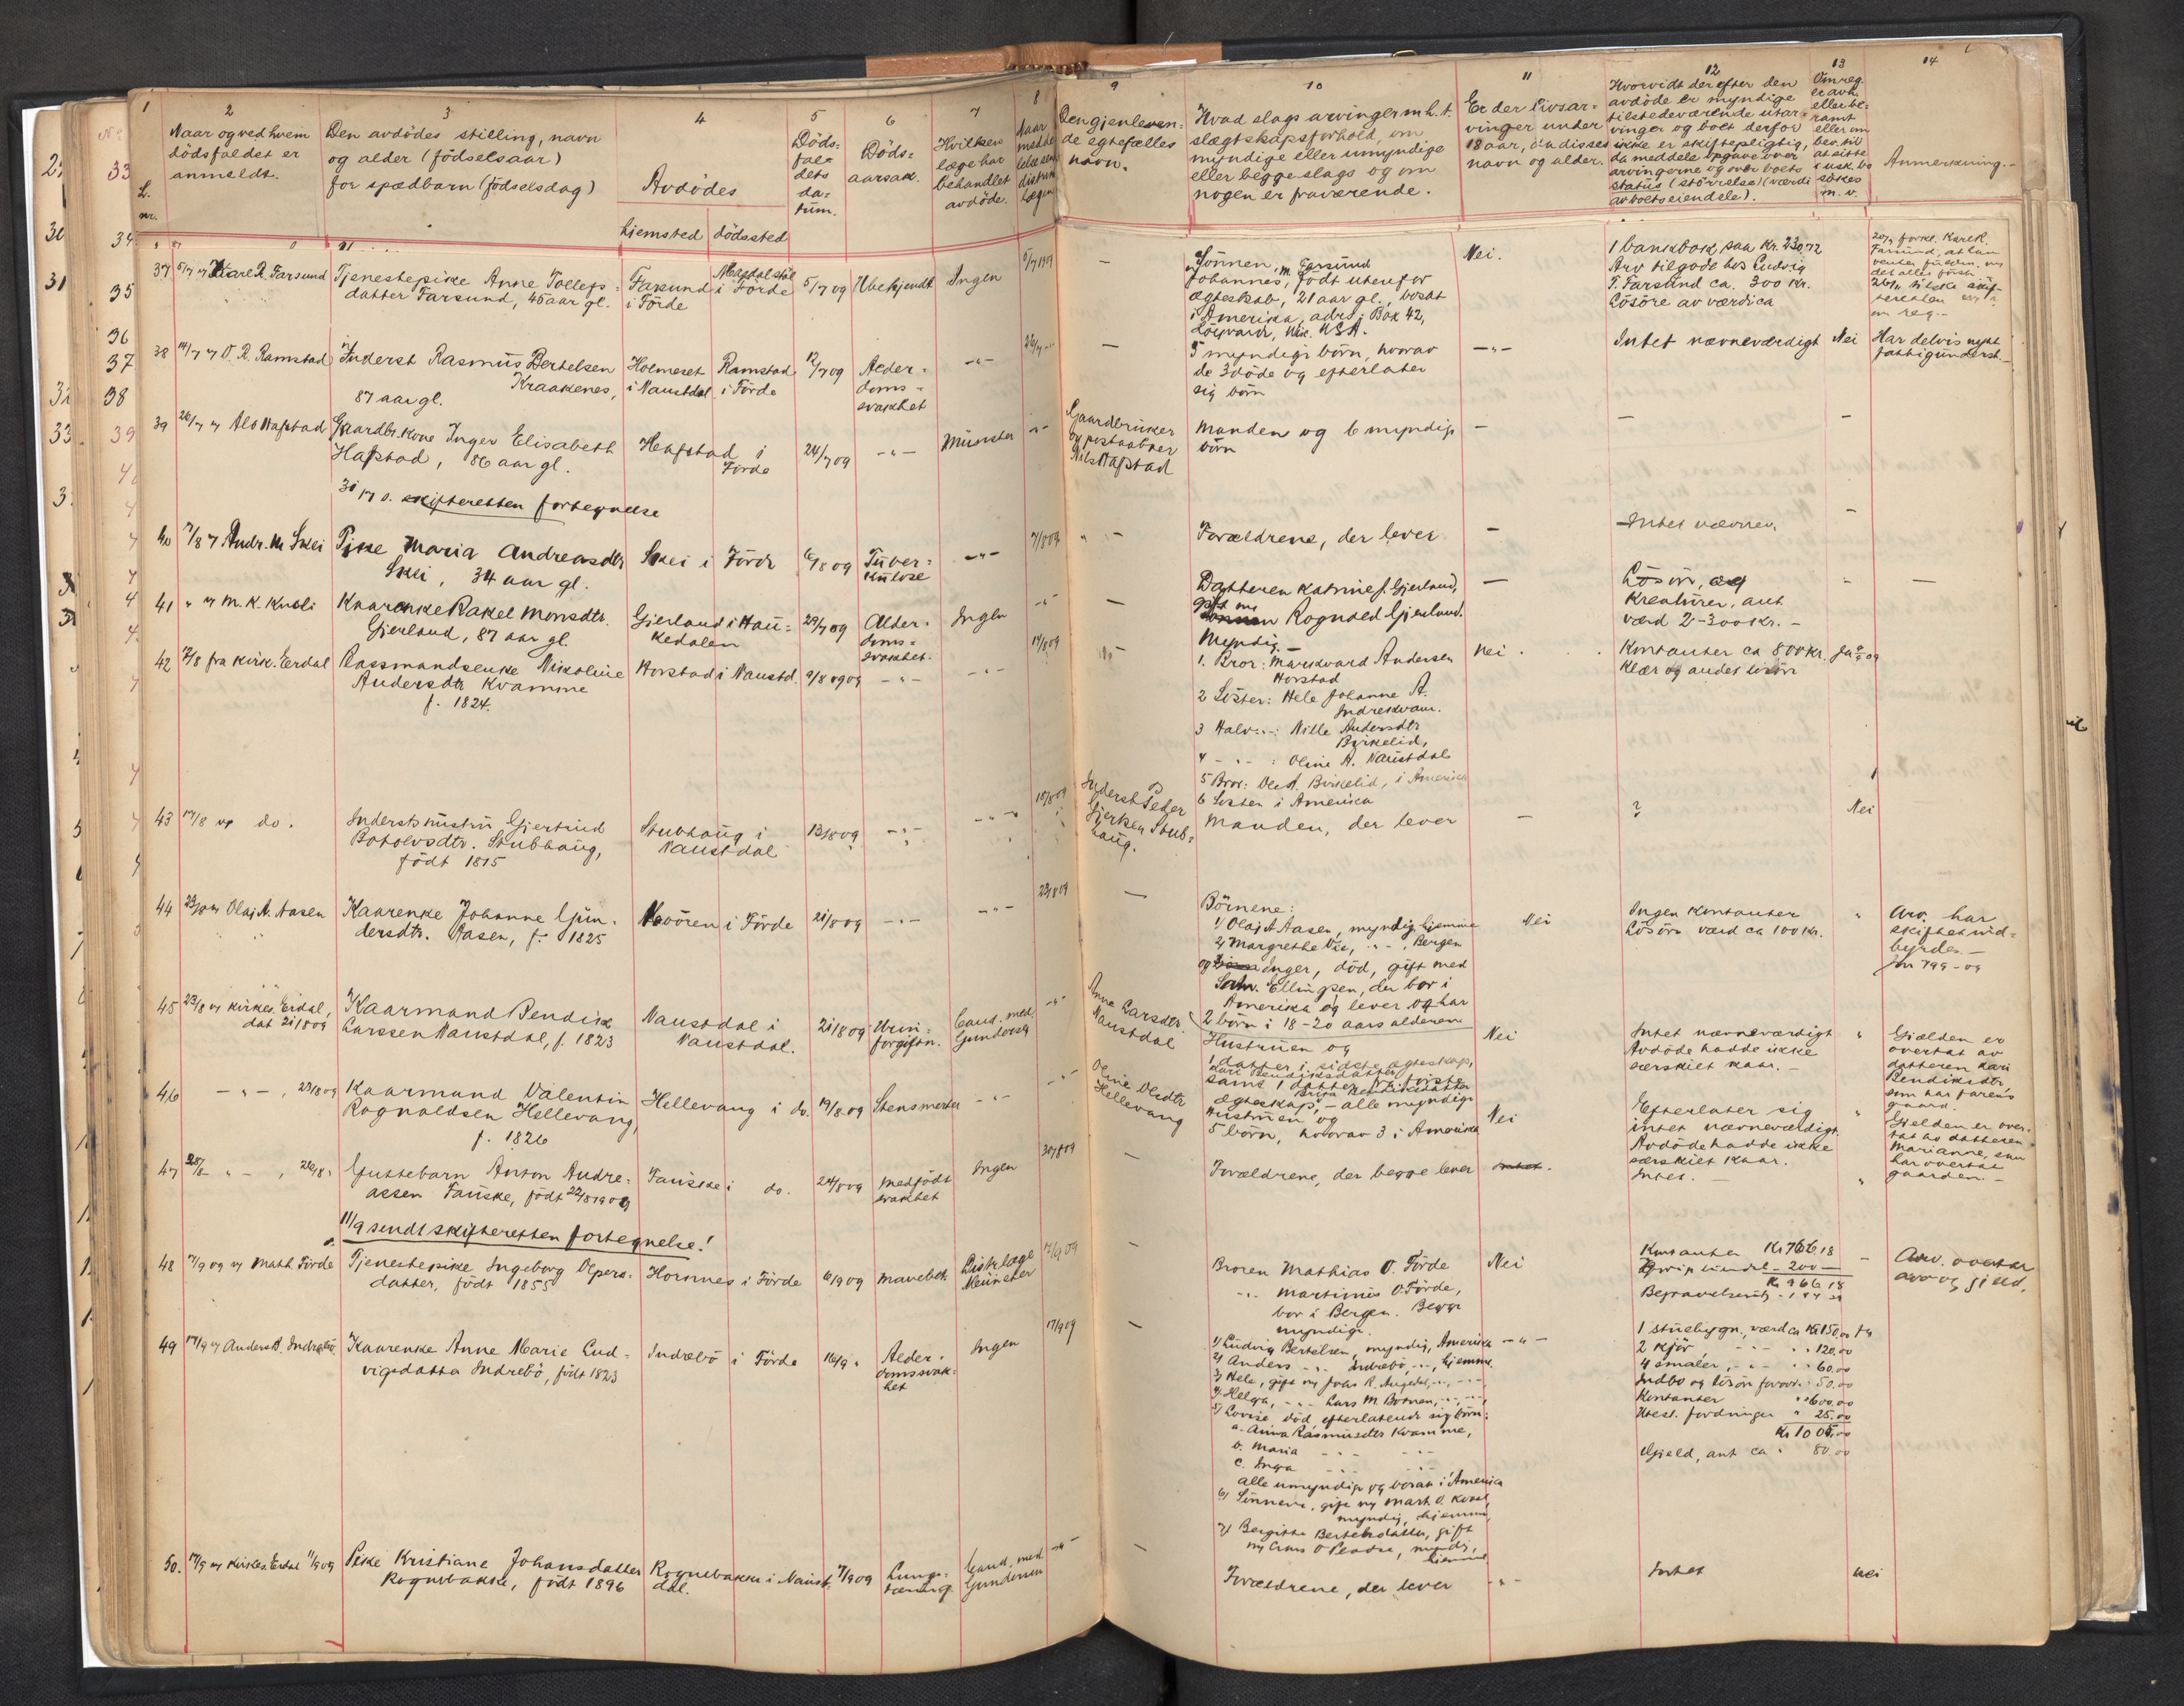 1
2
3
4
5
6
7
8
9
10
11
12
13
14
L. nr.
Naar og ved hvem
dödsfaldet er
anmeldt.
Den avdödes stilling, navn
og alder (födselsaar)
for spædbarn (födselsdag)
Avdödes
hjemsted dödssted
Döds-
fal-
dets
da-
tum.
Döds-
aarsak.
Hvilken
læge har
behandlet
avdöde.
Naar
Den gjenleven-
de egtefælles
navn.
Hvad slags arvinger m.h.t.
slægtskapsforhold, om
myndige eller umyndige
eller begge slags og om
nogen er fraværende.
Er der livsar-
vinger under
18 aar, da disses
navn og alder.
Hvorvidt der efter den
avdöde er myndige
tilstedeværende utar-
vinger og boet derfor
ikke er skiftepligtig,
da meddele opgave over
arvingerne og over boets
status (störrelse) (værdi
av boets eiendele).
Anmerkning.
37 5/7 v Karl R. Farsund
Tjenestepike Anne Tollefs-
datter Farsund, 45 aar gl.
Farsund i Förde
i Förde
5/7 09
Ubekjendt
Ingen
5/7 1909
—
Sönnen,
Johannes, födt utenfor
ægteskab, 21 aar gl., bosat
i Amerika, adr.: Box 42,
U.S.A.
Nei.
1 bankbok paa kr. 230,72
Arv tilgode hos Ludvig
T. Farsund ca. 300 kr.
Lösöre av værdi ca
38 14/7 v O. R. Ramstad
Inderst Rasmus Bertelsen
Kraakenes,
87 aar gl.
Holmeset
i Naustdal
Ramstad
i Förde
12/7 09
Alder-
doms-
svakhet
—"—
—
5 myndige börn, hvorav
de 3 döde og efterlater
sig börn
—"—
Intet nævneværdigt
Nei
Har delvis nydt
fattigunderst.
39 26/7 v Nils Hafstad
Gaardbr.kone Inger Elisabeth
Hafstad, 86 aar gl.
Hafstad i
Förde
24/7 09
—"—
Münster
Gaardbruker
og postaabner
Nils Hafstad
Manden og 6 myndige
börn
—
—
—
skifteretten fortegnelse
40 7/8 v Andr. M. Skei
Pike Maria Andreasdtr
Skei, 34 aar gl.
Skei i Förde
6/8 09
Tuber-
kulose
—"—
7/8 09
Forældrene, der lever
—
Intet nævnev.
—
41 " v M. K. Kusli
Kaarenke Rakel Monsdtr.
Gjerland, 87 aar gl.
Gjerland i Hau-
kedalen
29/7 09
Alder-
doms-
svakhet.
Ingen
—"—
—
Datteren Katrine J. Gjerland,
gift m
Rognald Gjerland.
Myndig.
—
Lösöre, og
Kreaturer, ant
værd 2-300 kr. —
—
42 12/8 fra kirk. Erdal
Rassmandsenke Nikoline
Andersdtr Kvamme
f. 1824.
Horstad i Naustd.
9/8 09
—"—
—"—
14/8 09
1. Bror: Markvard Andersen
Horstad
2 Söster: Hele Johanne A.
Indrekvam.
3 Halv-"-: Nille Andersdtr
Birkelid,
4 —"— : Oline A. Naustdal
5 Bror: Ole A. Birkelid, i Amerika
6 Söster i Amerika
Nei.
Kontanter ca 800 kr.
klær og andet lösöre
43 17/8 v do.
Inderstshustru Gjertrud
Botolvsdtr. Stubhaug,
födt 1815
Stubhaug i
Naustdal
13/8 09
—"—
—"—
18/8 09
Inderst Peder
Gjerken Stub-
haug.
Manden, der lever
—
?
Nei
44 23/8 v Olaj A. Aasen
Kaarenke Johanne Gun-
dersdtr. Aasen, f. 1825
i Förde
21/8 09
—"—
—"—
23/8 09
—
Börnene:
1/ Olaj A Aasen, myndig, hjemme
2/ Margrethe Vie, —"—, Bergen
og Inger, död, gift med
Ellingsen, der bor i
Amerika og lever og har
2 börn i 18-20 aars alderen
Nei
Ingen kontanter
Lösöre værd ca 100 kr.
"
Arv. har
skiftet uid-
byrdes. —
Jnr 799-09
45 23/8 v kirkes. Erdal,
dat 21/8 09
Kaarmand Bendik
Larssen Naustdal, f. 1823
Naustdal i
Naustdal.
21/8 09
Urin-
forgiftn.
Cand. med.
Gundersen
—"—
Anne Larsdtr.
Naustdal
Hustruen og
1 datter i sidste ægteskap,
Kari Bendiksdatter
samt 1 datter fra förste
ægteskap, — alle myndige
Nei
Intet nævneværdigt
Avdöde hadde ikke
særskilt kaar. —
"
Gjælden er
overtat av
datteren Kari
Bendiksdtr,
som har farens
gaard.
46 —"—, 23/8 09
Kaarmand Valentin
Rognaldsen Hellevang,
f. 1826
Hellevang i do.
19/8 09
Stensmerter
—"—
—"—
Oline Olsdtr
Hellevang
Hustruen og
5 börn, hvorav 3 i Amerika
Nei
Efterlater sig
intet nævneværdigt.
Avdöde hadde ikke
særskilt kaar.
"
Gjelden er over-
tat av datteren
Marianne, som
har overtat
gaarden. —
47 28/8 —"—, 26/8
Guttebarn Anton Andre-
assen Fauske, födt 22/8 1909
Fauske i do.
24/8 09
Medfödt
svakhet
Ingen
30/8 09
—
Forældrene, der begge lever
Intet. —
"
11/9 sendt skifteretten fortegnelse!
48 7/9 09 v Math. Förde
Tjenestepike Ingeborg Olpers-
datter, födt 1855
Hornnes i Förde
6/9 09
mavebet.
Distr.læge
Münster
7/9 09
—
Broren Mathias O. Förde
—"— Martinus O. Förde,
bor i Bergen. Begge
myndige.
Nei
Kontanter Kr 766 18
200 —
Kr 966 18
—
Arv. overtar
arv og gjeld.
49 17/9 v Anders B. Indrebö
Kaarenke Anne Marie Lud-
vigsdatter Indrebö, födt 1823
Indrebö i Förde
16/9 "
Alder-
domssvak-
het
Ingen
17/9 09
—
1/ Ludvig Bertelsen, myndig, Amerika
2/ Anders —"— Indrebö, —"—, hjemme.
3/ Hele, gift m Johs R. Angedal, —"—
4/ Helga, —"— Lars M. —"—
5/ Lovise, död, efterlatende sig börn:
a. Anna Rasmusdtr Kvamme,
b. Maria —"— —"—
c. Inga —"— —"—
alle umyndige og bosat i Amerika
6/ gift m Mart. O.
myndig, hjemme,
7/ Bergitte Bertelsdatter, gift
myndig,
hjemme
—"—
1 stuebygn., værd ca Kr 150.00
2 kjör —"— " 120.00
4 smaler, —"— " 60.00
Indbo og lösöre " 50.00
Kontanter " 600.00
Utest. fordringer " 25.00
Kr 1005.00
Gjeld, ant ca " 80.00
50. 17/9 v kirkes. Erdal 11/9 09
Pike Kristiane Johansdatter
Rognebakke, födt 1896
Rognebakke i Naust-
dal.
7/9 09
Lunge-
tæring
Cand. med.
Gundersen
—"—
—
Forældrene, der lever
—"—
Intet
nei